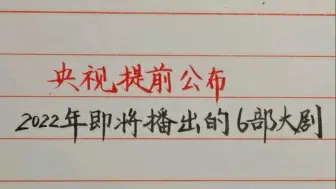 央视提前公布
2022年即将播出的6部大剧